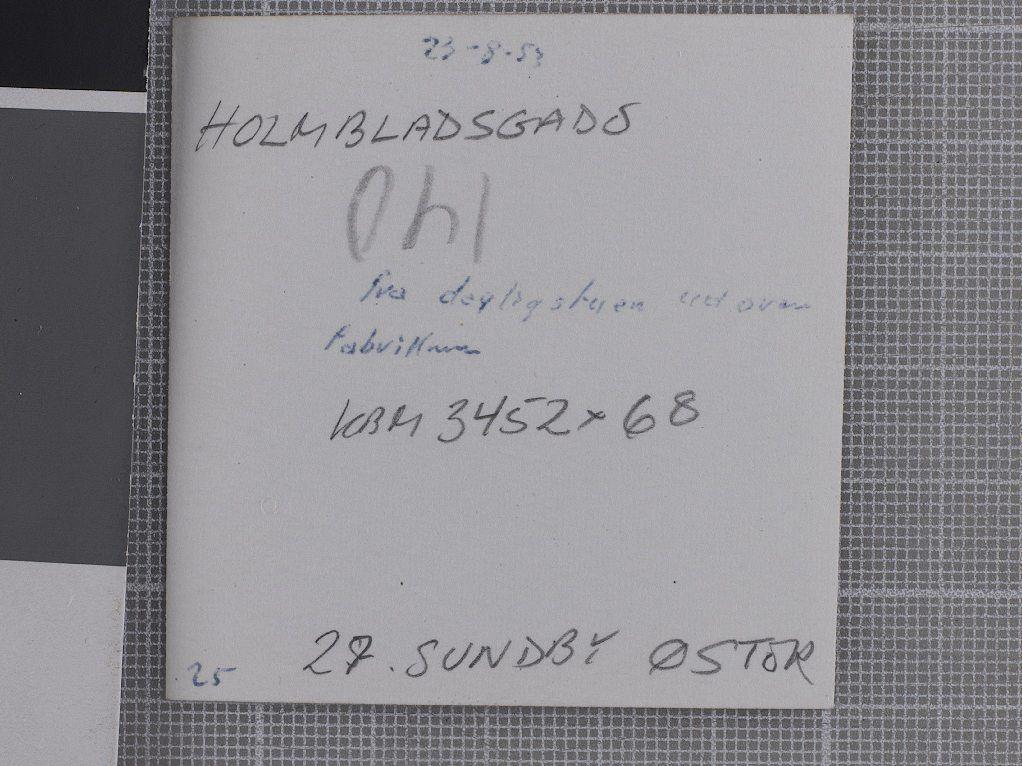 23-8-53
HOLMBLADSGADE
140
fra dagligstuen ud over
fabrikken
KBM 3452 x 68
27. SUNDBY ØSTER
25